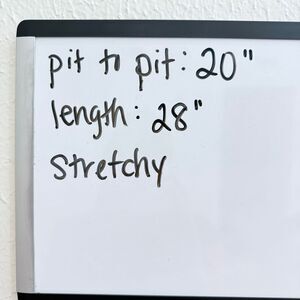 pit to pit: 20"
length: 28"
Stretchy